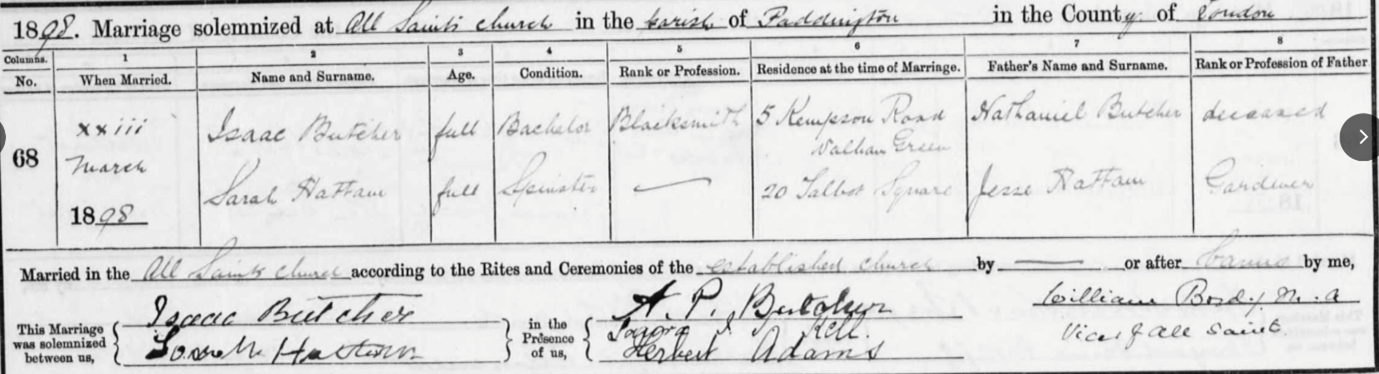 1898. Marriage solemnized at All Saints church in the parish of Paddington in the County of London
Columns. 1 2 3 4 5 6 7 8
No. When Married. Name and Surname. Age. Condition. Rank or Profession. Residence at the time of Marriage. Father's Name and Surname. Rank or Profession of Father
68
xxiii March 1898
Isaac Butcher full Bachelor Blacksmith 5 Kempson Road Walham Green Nathaniel Butcher deceased
Sarah Hattam full Spinster — 20 Talbot Square Jesse Hattam Gardener
Married in the All Saints church according to the Rites and Ceremonies of the established church by — or after Banns by me,
This Marriage was solemnized between us,
Isaac Butcher
Sarah Hattam
in the Presence of us,
A. P. Butcher
Kell
Herbert Adams
William Boyd, M.A
Vicar of All Saints